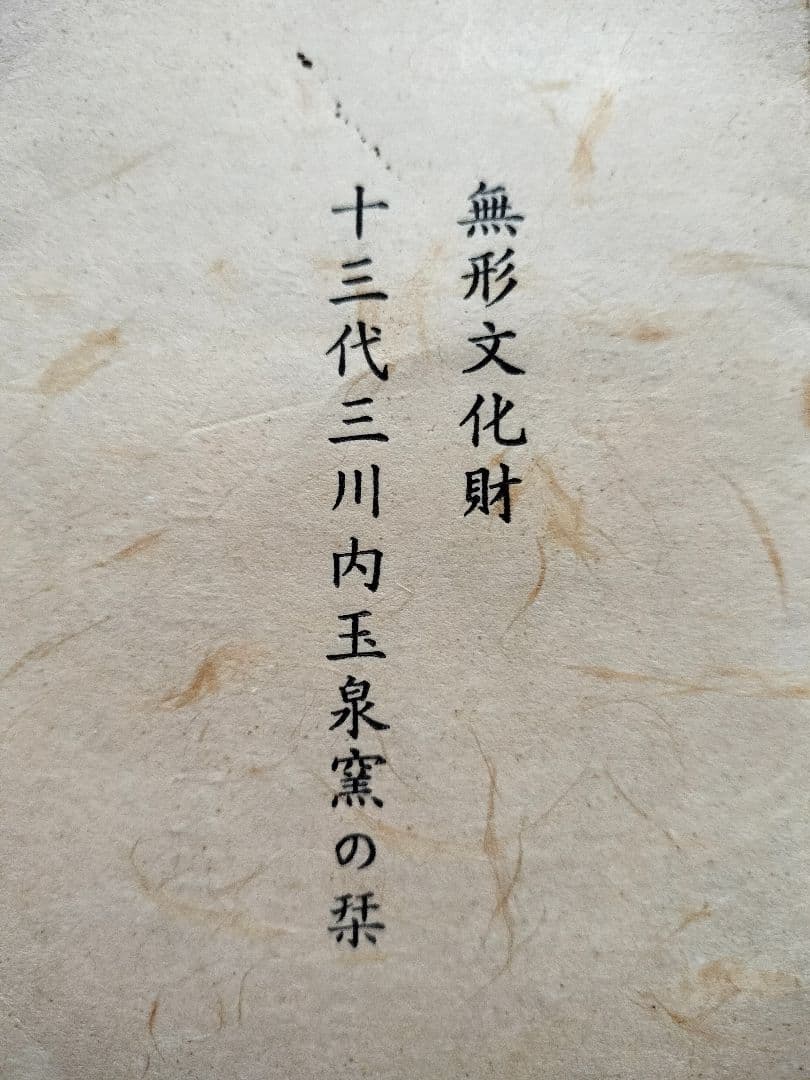 無形文化財
十三代三川内玉泉窯の栞